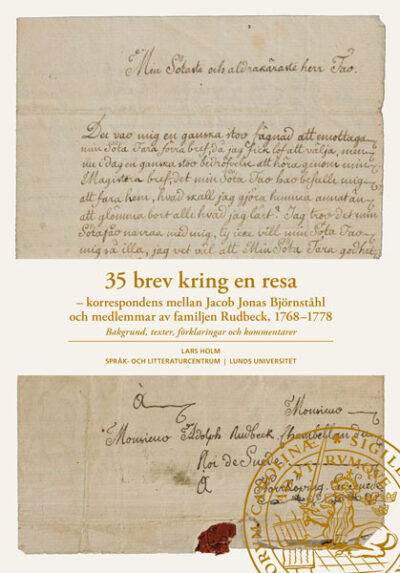 Min Sötaste och aldrakäraste herr Far.
Det var mig en ganska stor fägnad att emottaga
min Söta Fars förra bref, då jag fick lof att välja, men
nu i dag en ganska stor bedröfvelse att höra genom min
Magisters bref, det min Söta Far har befalt mig
att fara hem, hvad skall jag gjöra hemma annat än
att glömma bort allt hvad jag lärt? Jag tror det min
Söta far narras med mig, ty icke vill min Söta Far
mig så illa, jag vet väl att Min Söta Fars godhet
35 brev kring en resa
– korrespondens mellan Jacob Jonas Björnståhl
och medlemmar av familjen Rudbeck, 1768–1778
Bakgrund, texter, förklaringar och kommentarer
LARS HOLM
SPRÅK- OCH LITTERATURCENTRUM | LUNDS UNIVERSITET
à Monsieur
Monsieur Adolph Rudbeck, Chambellan du
Roi de Suede
à
CAROLINÆ SIGILL